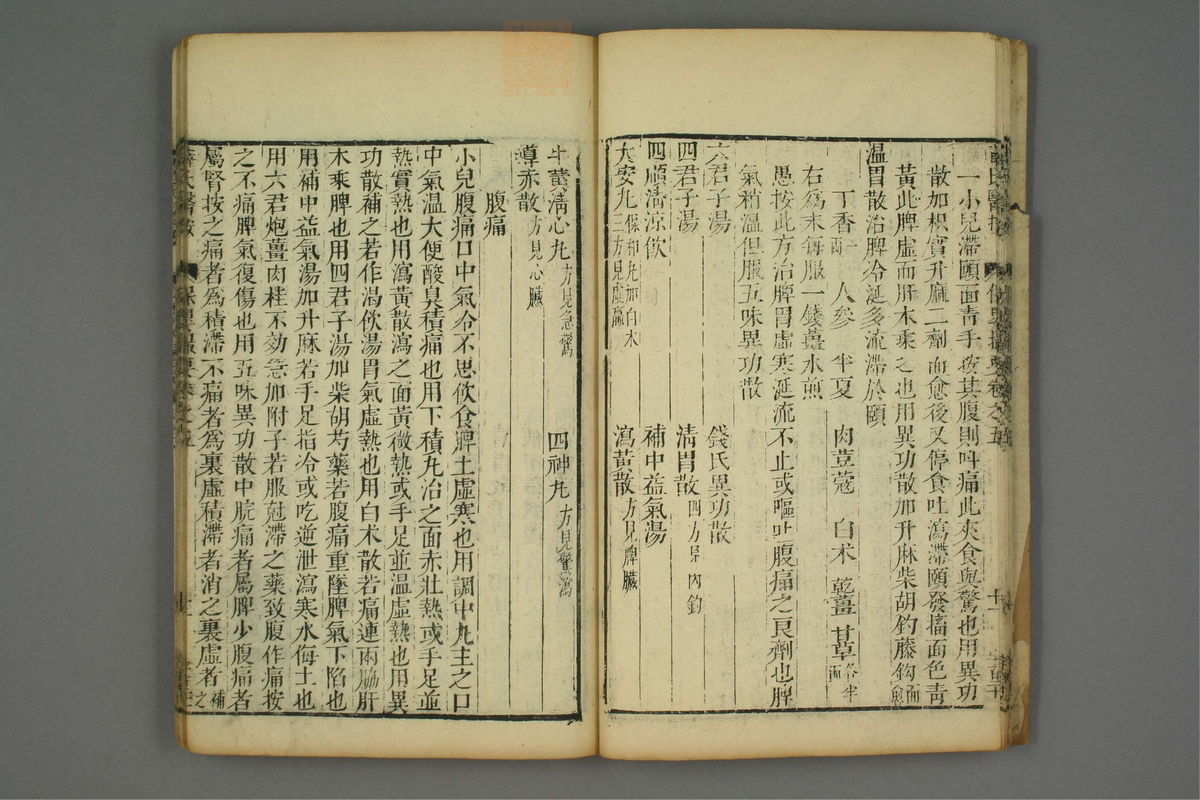 一小兒滯頤面青手按其腹則呌痛此夾食與驚也用異功
散加枳實升麻二劑而愈後又停食吐瀉滯頤發搐面色青
黃此脾虛而肝木乘之也用異功散加升麻柴胡鈎藤鈎而愈
溫胃散治脾冷涎多流滯於頤
丁香一兩 人參 半夏 肉荳蔻 白朮 乾薑 甘草各半兩
右爲末每服一錢薑水煎
愚按此方治脾胃虛寒涎流不止或嘔吐腹痛之良劑也脾
氣稍溫但服五味異功散
六君子湯 錢氏異功散
四君子湯 清胃散四方見內釣
四順清涼飲 補中益氣湯
大安丸保和丸加白朮三方見虛羸 瀉黃散方見脾臟
牛黃清心丸方見急驚 四神丸方見驚瀉
導赤散方見心臟
腹痛
小兒腹痛口中氣冷不思飲食脾土虛寒也用調中丸主之口
中氣溫大便酸臭積痛也用下積丸治之面赤壯熱或手足並
熱實熱也用瀉黃散瀉之面黃微熱或手足並溫虛熱也用異
功散補之若作渴飲湯胃氣虛熱也用白朮散若痛連兩脇肝
木乘脾也用四君子湯加柴胡芍藥若腹痛重墜脾氣下陷也
用補中益氣湯加升麻若手足指冷或吃逆泄瀉寒水侮土也
用六君炮薑肉桂不効急加附子若服尅滯之藥致腹作痛按
之不痛脾氣復傷也用五味異功散中脘痛者屬脾少腹痛者
屬腎按之痛者爲積滯不痛者爲裏虛積滯者消之裏虛者補之